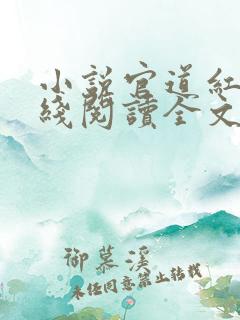 小說官道紅
綫閱讀全文
御慕溪
未经同意禁止转载